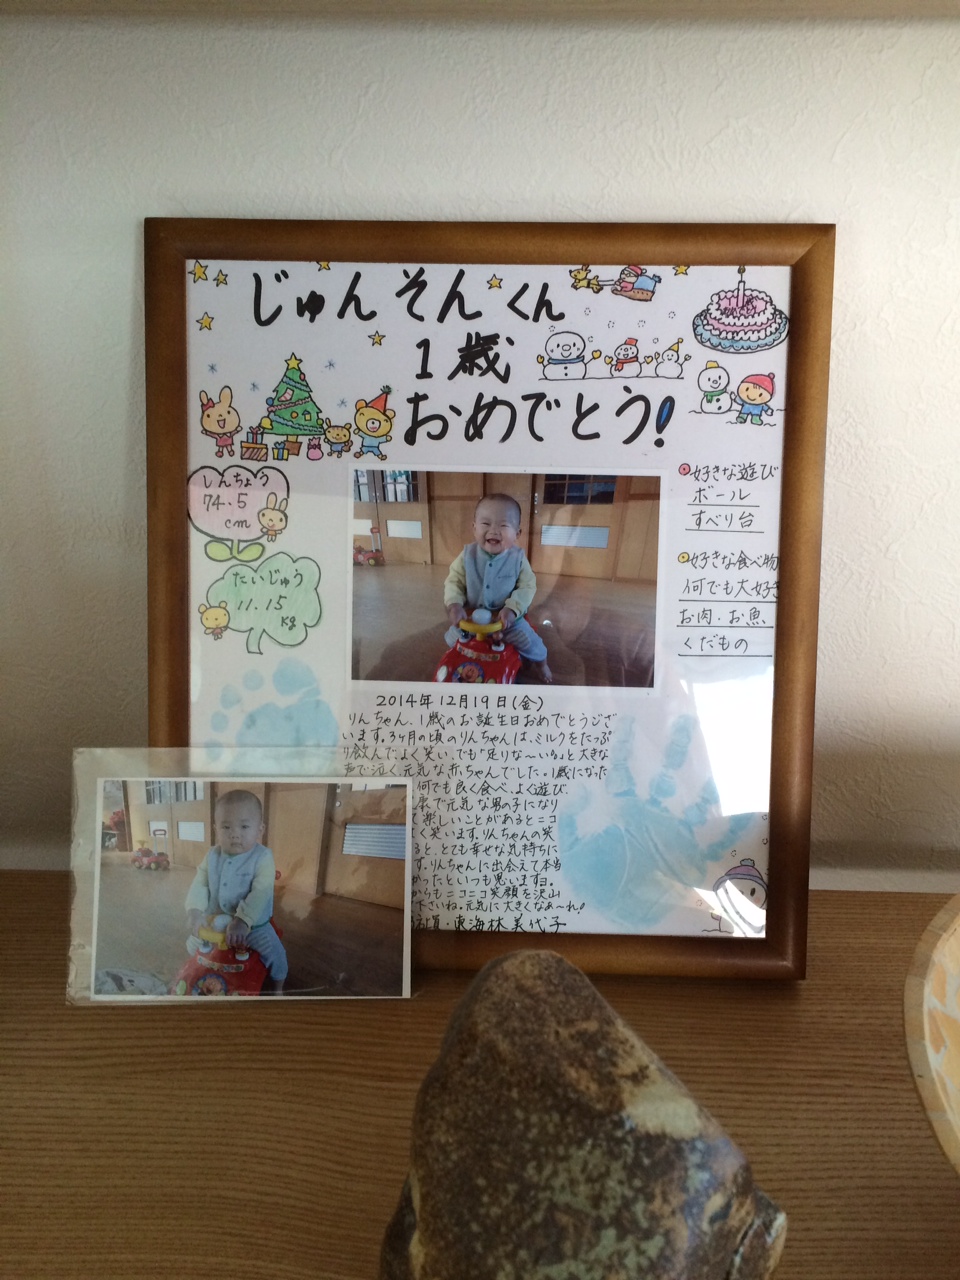 じゅんそんくん
1歳
おめでとう!
しんちょう
74.5
cm
たいじゅう
11.15
kg
好きな遊び
ボール
すべり台
好きな食べ物
何でも大好き
お肉・お魚
くだもの
2014年12月19日(金)
りんちゃん、1歳のお誕生日おめでとうござ
います。3ヶ月の頃のりんちゃんは、ミルクをたっぷ
り飲んで、よく笑い、でも「足りな〜い」と大きな
声で泣く、元気な赤ちゃんでした。1歳になった
何でも良く食べ、よく遊び
で元気な男の子になり
楽しいことがあるとニコ
く笑います。りんちゃんの笑
ると、とても幸せな気持ちに
す。りんちゃんに出会えて本当
かったといつも思います。
からもニコニコ笑顔を沢山
下さいね。元気に大きくなぁ〜れ!
東海林 美代子